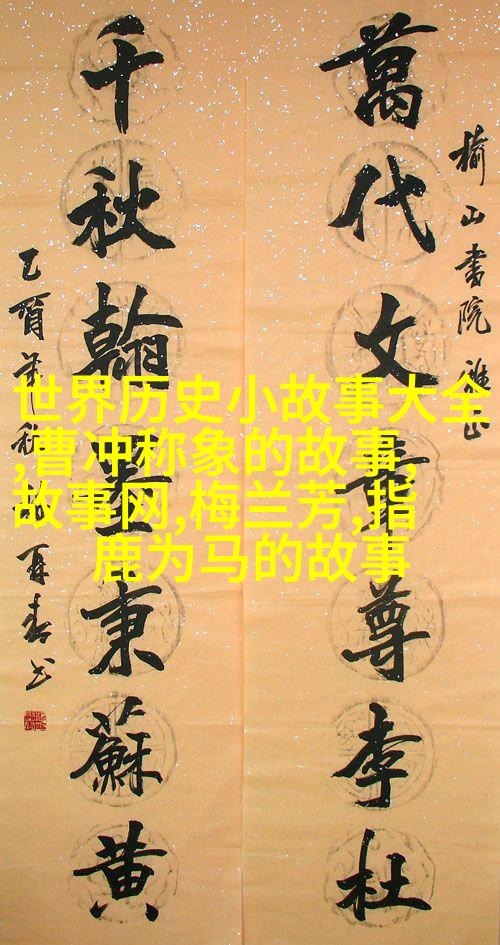 榆山書院雅正
萬代文章尊李杜
千秋翰墨秉蘇黄
乙酉年秋再春书
世界历史小故事大全
,曹冲称象的故事,
故事网,梅兰芳,指
鹿为马的故事